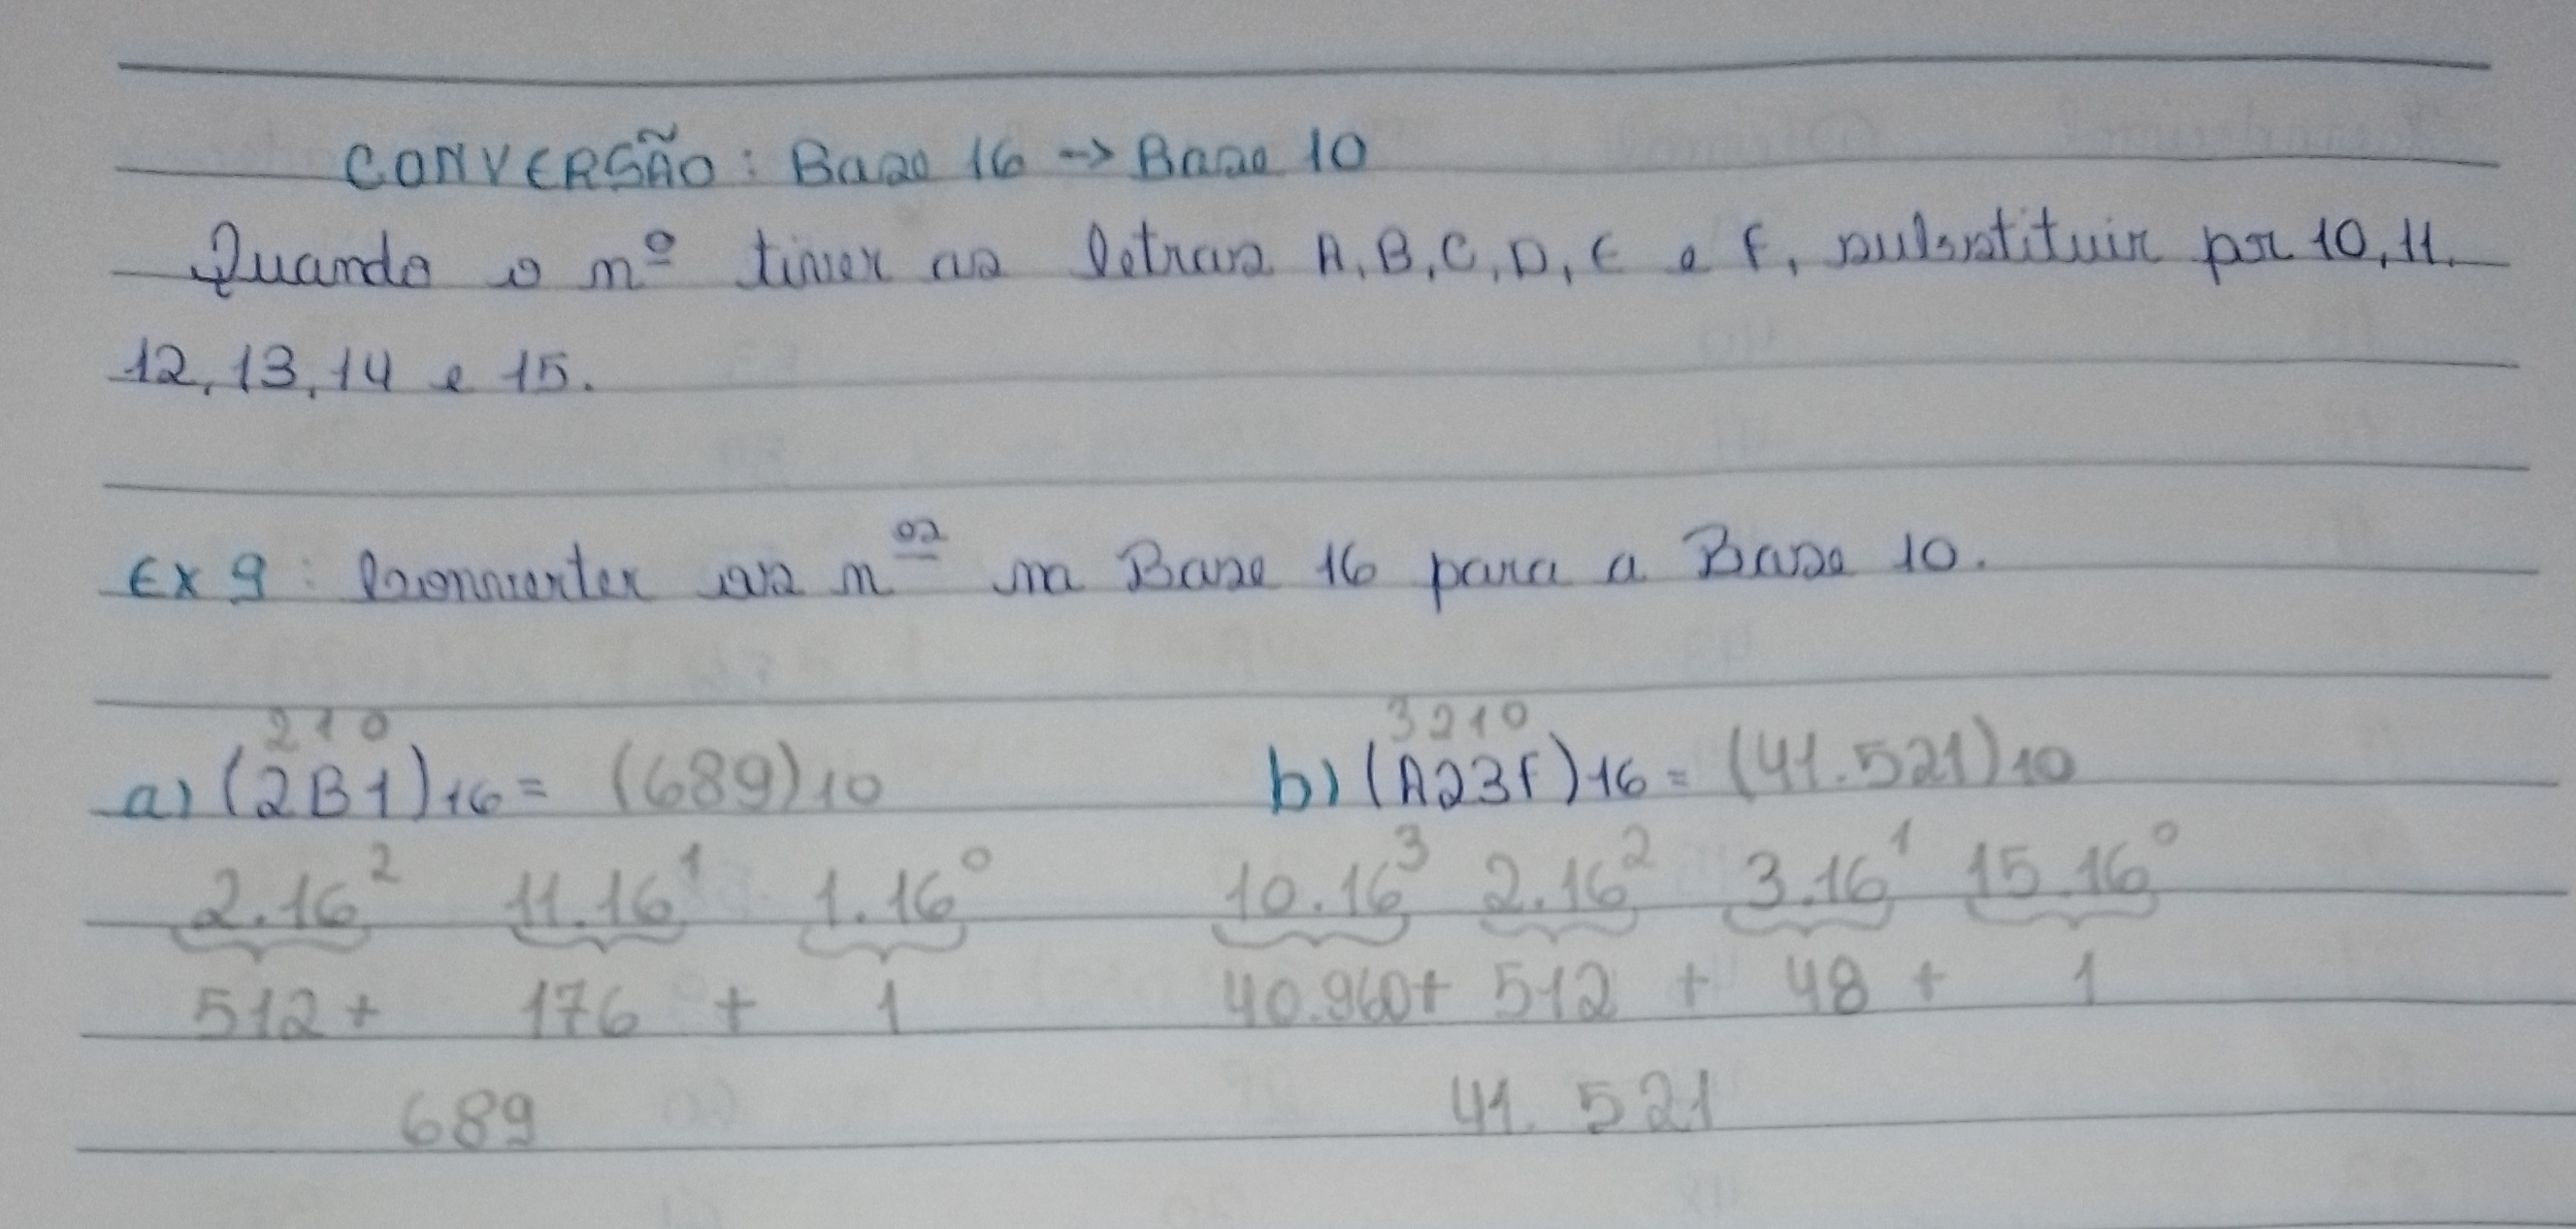 CONVERSÃO: Base 16 -> Base 10
Quando o nº tiver as letras A, B, C, D, E e F, substituir por 10, 11,
12, 13, 14 e 15.
Ex 9: Converter os nºs na Base 16 para a Base 10.
2 1 0
a) (2B1)16 = (689)10
2.16² 11.16¹ 1.16⁰
512 + 176 + 1
689
3 2 1 0
b) (A23F)16 = (41.521)10
10.16³ 2.16² 3.16¹ 15.16⁰
40.960 + 512 + 48 + 1
41.521